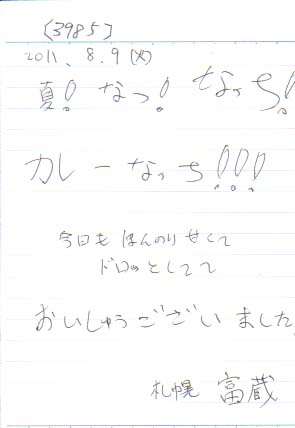 [3985]
2011、8.9(火)
夏! なっ! なっち!
カレーなっち!!!
今日も ほんのり 甘くて
ドロっとしてて
おいしゅうございました。
札幌 富蔵